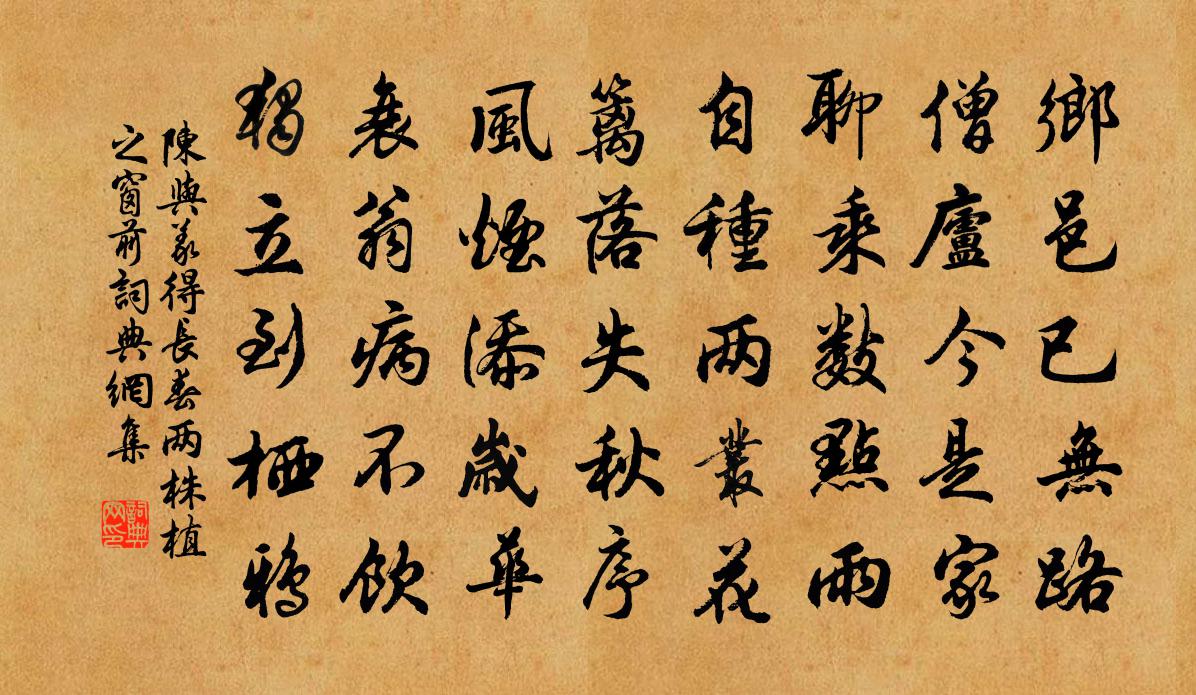 鄉邑已無路
僧廬今是家
聊乘數點雨
自種两叢花
篱落失秋序
風煙添歲華
衰翁病不飲
獨立到栖鴉
陳與義得長春两株植
之窗前詞典網集
詞典
网印